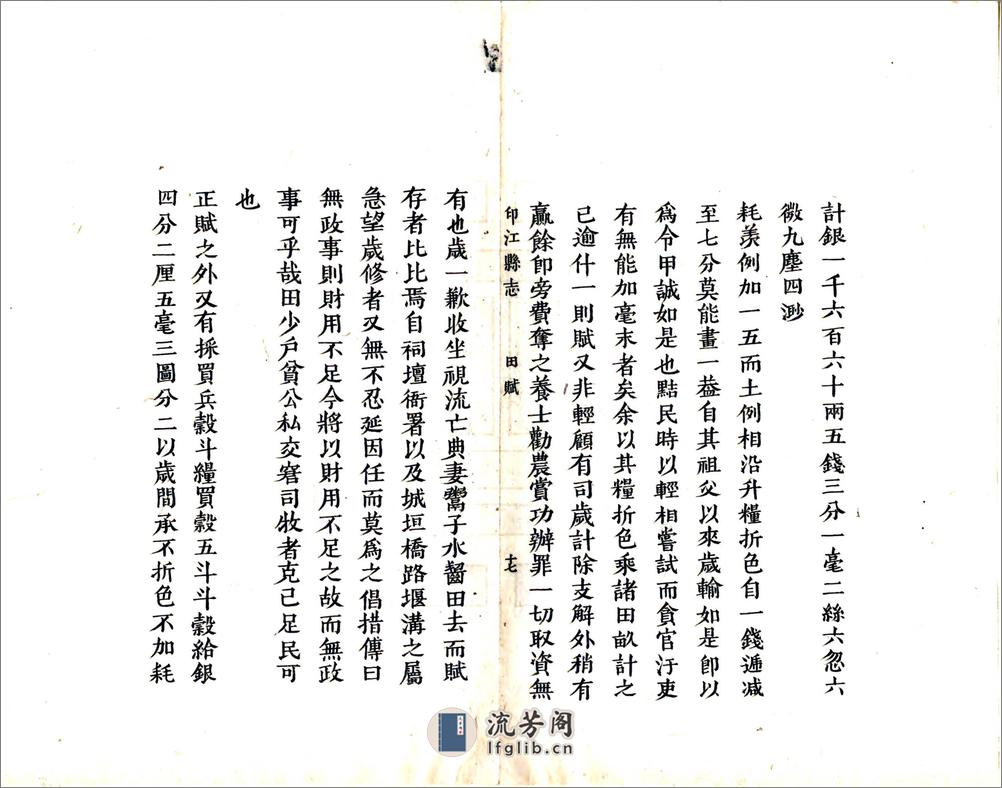 計銀一千六百六十兩五錢三分一毫二絲六忽六
微九塵四渺
耗羨例加一五而土例相沿升糧折色自一錢遞減
至七分莫能畫一葢自其祖父以來歲輸如是卽以
爲令甲誠如是也黠民時以輕相嘗試而貪官汙吏
有無能加毫末者矣余以其糧折色乘諸田畝計之
已逾什一則賦又非輕顧有司歲計除支解外稍有
贏餘卽旁費奪之養士勸農賞功辦罪一切取資無
印江縣志 田賦 十七
有也歲一歉收坐視流亡典妻鬻子水齧田去而賦
存者比比焉自祠壇衙署以及城垣橋路堰溝之屬
急望歲修者又無不忍延因任而莫爲之倡措傳曰
無政事則財用不足今將以財用不足之故而無政
事可乎哉田少戶貧公私交窘司牧者克己足民可
也
正賦之外又有採買兵穀斗糧買穀五斗斗穀給銀
四分二厘五毫三圖分二以歲間承不折色不加耗
流芳阁
lfglib.cn